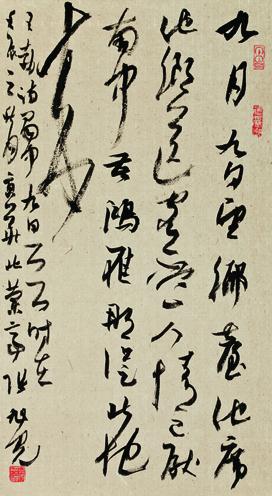 九月九日望鄉臺他席
他鄉送客杯人情已厭
南中苦鴻雁那從北地
來
王勃詩蜀中九日時在
北蘭亭張旭光